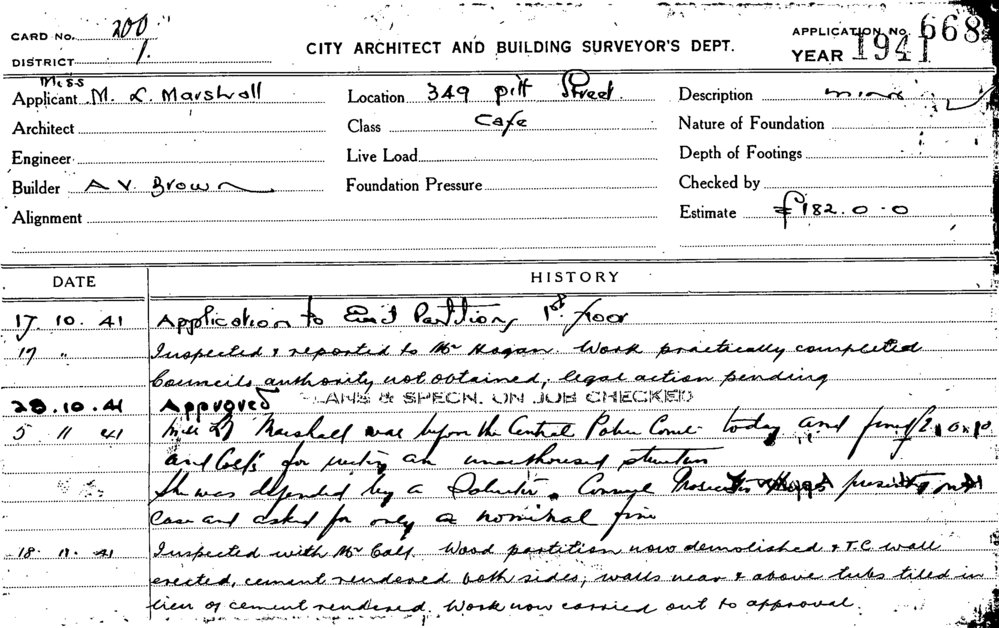 CARD NO. 200 APPLICATION NO. 668
DISTRICT 1. CITY ARCHITECT AND BUILDING SURVEYOR'S DEPT. YEAR 1941
Miss
Applicant M. L. Marshall Location 349 Pitt Street Description minor
Architect Class Cafe Nature of Foundation
Engineer Live Load Depth of Footings
Builder A V. Brown Foundation Pressure Checked by
Alignment Estimate £182.0.0
DATE HISTORY
17 10. 41 Application to Erect Partitions, 1st floor
17 " Inspected & reported to Mr Hogan. Work practically completed
Councils authority not obtained, legal action pending
28.10.41 Approved PLANS & SPECN. ON JOB CHECKED
5 11 41 Miss Marshall was before the Central Police Court today and fined
and for an unauthorised structure
She was defended by a Solicitor. present
case and asked for only a nominal fine
18. 11. 41 Inspected with Mr Calf. Wood partition now demolished & T.C wall
erected, cement rendered both sides, walls near & above tubs tiled in
lieu of cement rendered. Work now carried out to approval.